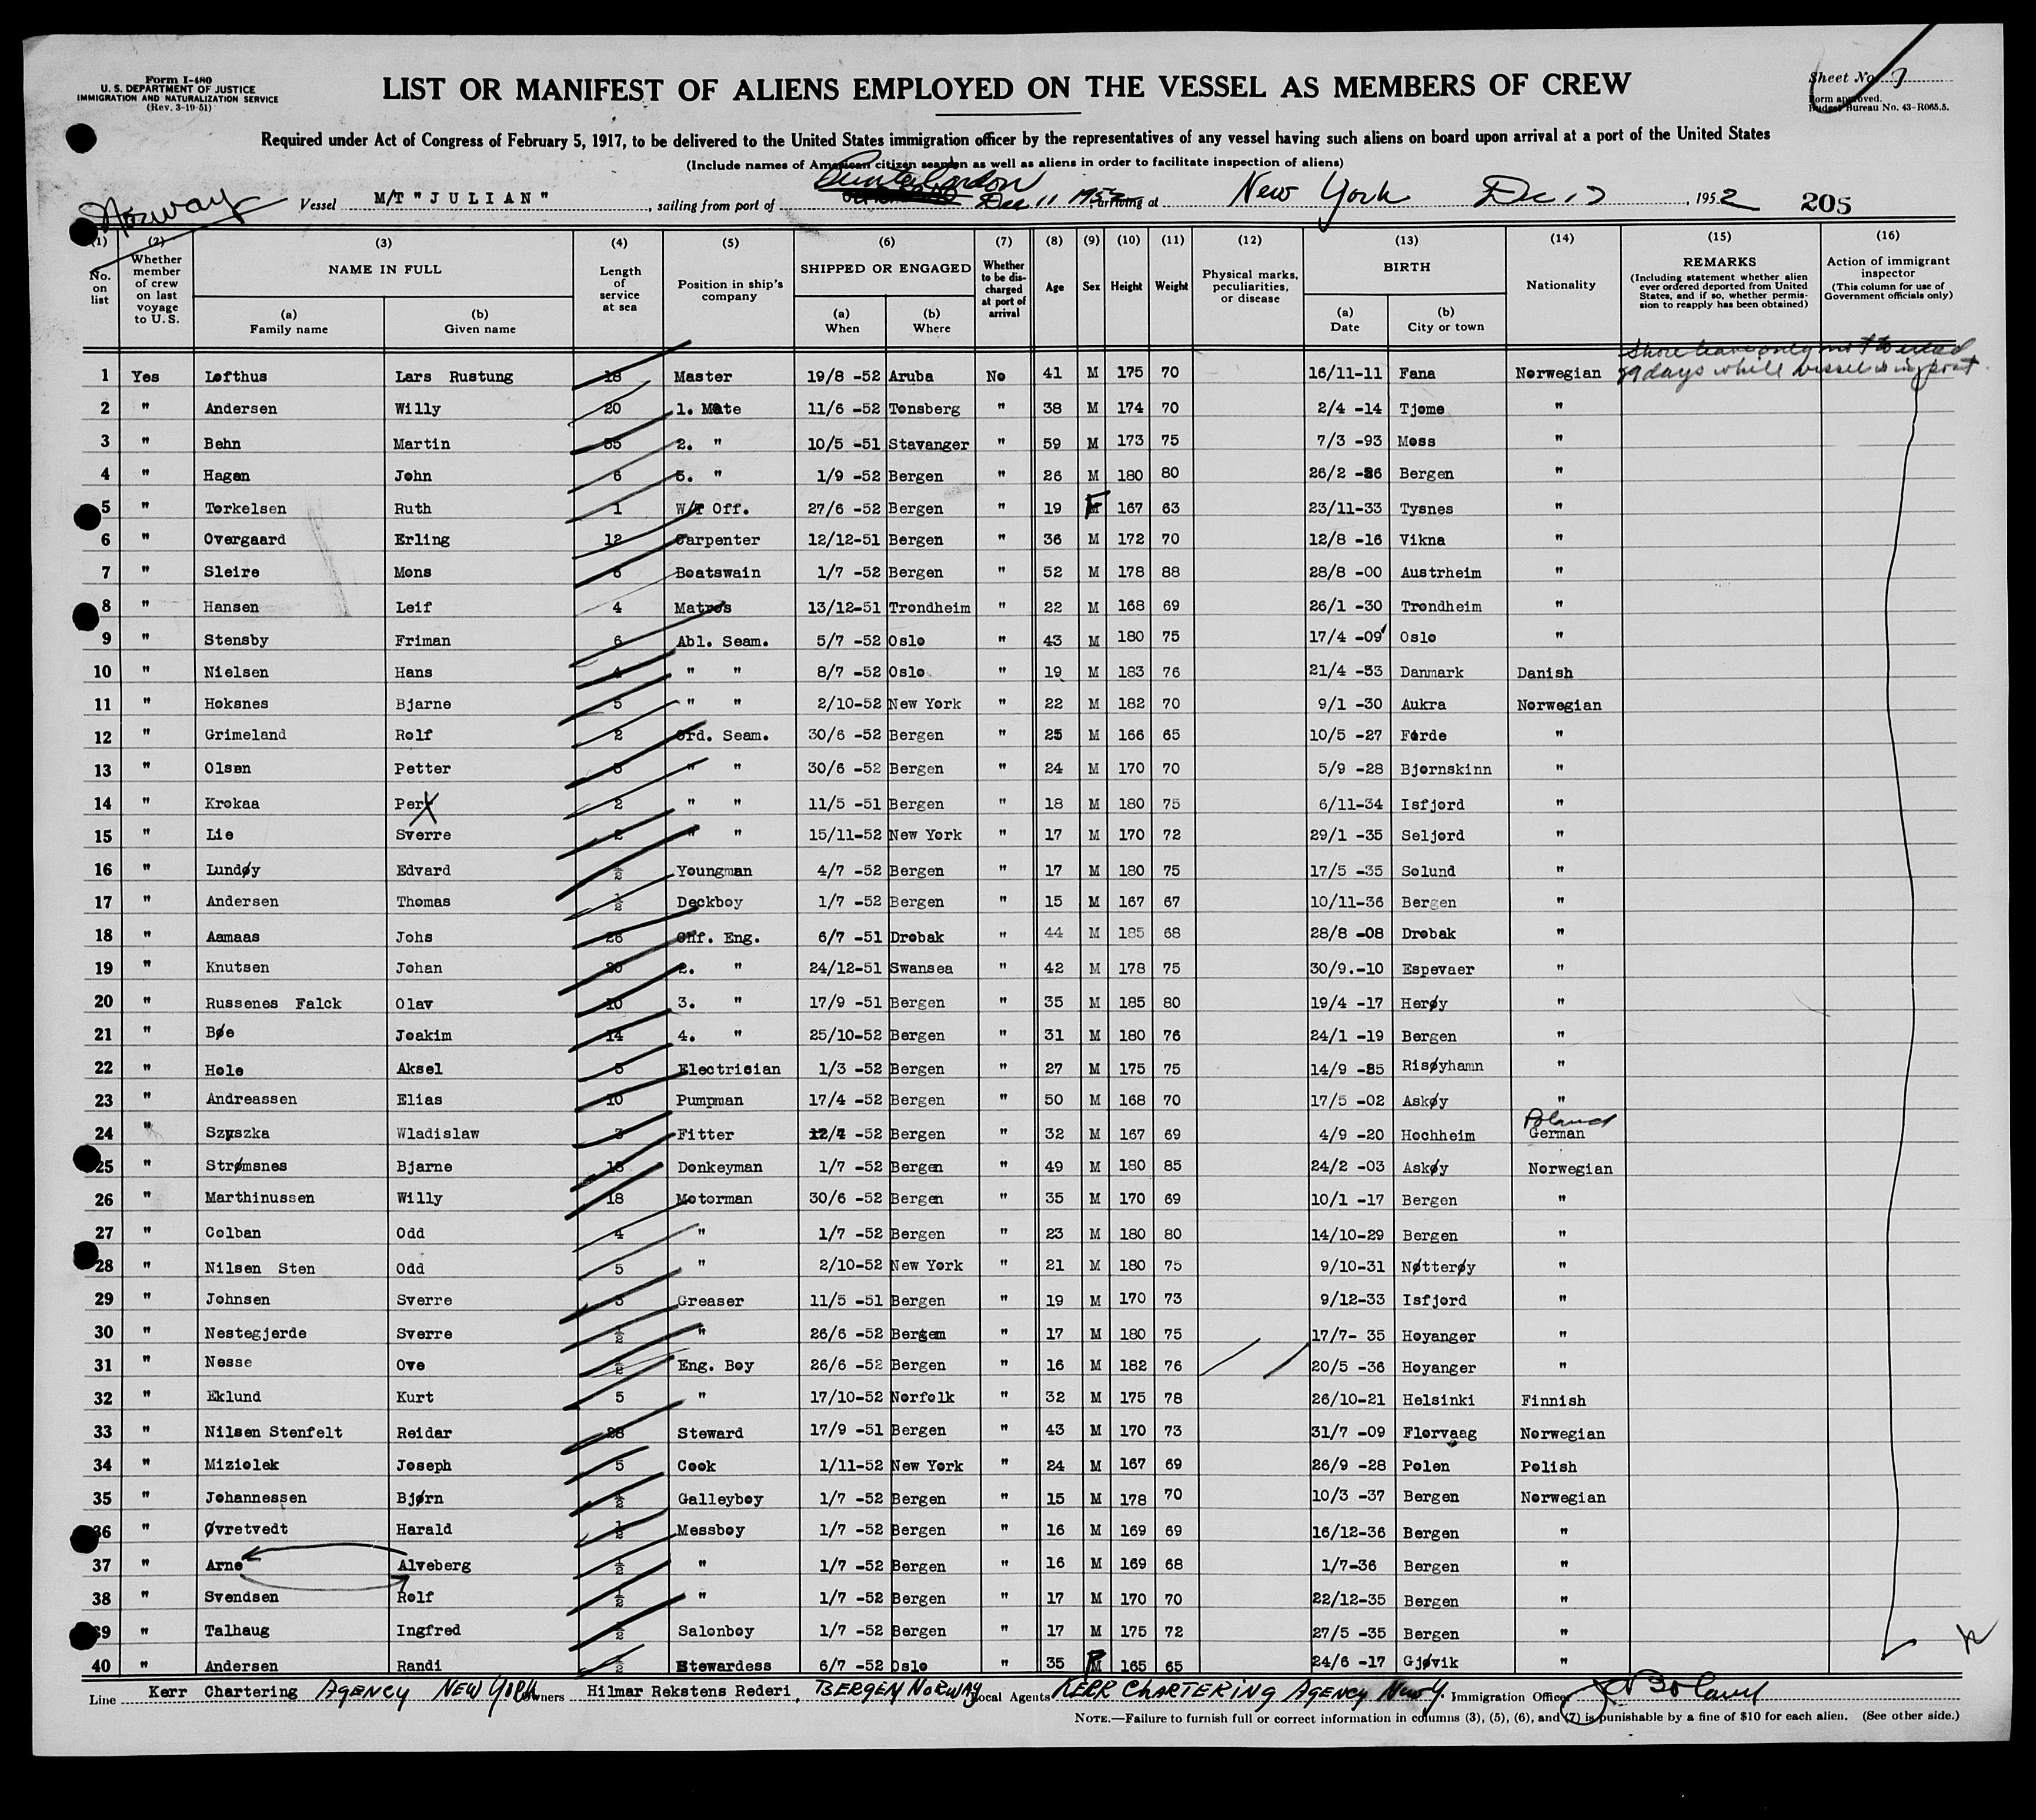 Form I-480
U. S. DEPARTMENT OF JUSTICE
IMMIGRATION AND NATURALIZATION SERVICE
(Rev. 3-19-51)
LIST OR MANIFEST OF ALIENS EMPLOYED ON THE VESSEL AS MEMBERS OF CREW
Sheet No.
Form approved.
Budget Bureau No. 43-R065.5.
Required under Act of Congress of February 5, 1917, to be delivered to the United States immigration officer by the representatives of any vessel having such aliens on board upon arrival at a port of the United States
(Include names of American citizen seamen as well as aliens in order to facilitate inspection of aliens)
Norway Vessel M/T "JULIAN" , sailing from port of Dec 11 1952, arriving at New York Dec 17 , 1952 205
(1) No. on list (2) Whether member of crew on last voyage to U. S. (3) NAME IN FULL (a) Family name (b) Given name (4) Length of service at sea (5) Position in ship's company (6) SHIPPED OR ENGAGED (a) When (b) Where (7) Whether to be discharged at port of arrival (8) Age (9) Sex (10) Height (11) Weight (12) Physical marks, peculiarities, or disease (13) BIRTH (a) Date (b) City or town (14) Nationality (15) REMARKS (Including statement whether alien ever ordered deported from United States, and if so, whether permission to reapply has been obtained) (16) Action of immigrant inspector (This column for use of Government officials only)
Shore leave only not to exceed
29 days while vessel is in port.
1 Yes Lofthus Lars Rustung 18 Master 19/8 -52 Aruba No 41 M 175 70 16/11-11 Fana Norwegian
2 " Andersen Willy 20 1. Mate 11/6 -52 Tonsberg " 38 M 174 70 2/4 -14 Tjome "
3 " Behn Martin 35 2. " 10/5 -51 Stavanger " 59 M 173 75 7/3 -93 Moss "
4 " Hagen John 6 3. " 1/9 -52 Bergen " 26 M 180 80 26/2 -26 Bergen "
5 " Torkelsen Ruth 1 W/T Off. 27/6 -52 Bergen " 19 F 167 63 23/11-33 Tysnes "
6 " Overgaard Erling 12 Carpenter 12/12-51 Bergen " 36 M 172 70 12/8 -16 Vikna "
7 " Sleire Mons 6 Boatswain 1/7 -52 Bergen " 52 M 178 88 28/8 -00 Austrheim "
8 " Hansen Leif 4 Matros 13/12-51 Trondheim " 22 M 168 69 26/1 -30 Trondheim "
9 " Stensby Friman 6 Abl. Seam. 5/7 -52 Oslo " 43 M 180 75 17/4 -09 Oslo "
10 " Nielsen Hans 4 " " 8/7 -52 Oslo " 19 M 183 76 21/4 -33 Danmark Danish
11 " Hoksnes Bjarne 5 " " 2/10-52 New York " 22 M 182 70 9/1 -30 Aukra Norwegian
12 " Grimeland Rolf 2 Ord. Seam. 30/6 -52 Bergen " 25 M 166 65 10/5 -27 Førde "
13 " Olsen Petter 3 " " 30/6 -52 Bergen " 24 M 170 70 5/9 -28 Bjornskinn "
14 " Krokaa Per 2 " " 11/5 -51 Bergen " 18 M 180 75 6/11-34 Isfjord "
15 " Lie Sverre 2 " " 15/11-52 New York " 17 M 170 72 29/1 -35 Seljord "
16 " Lundøy Edvard ½ Youngman 4/7 -52 Bergen " 17 M 180 75 17/5 -35 Solund "
17 " Andersen Thomas ½ Deckboy 1/7 -52 Bergen " 15 M 167 67 10/11-36 Bergen "
18 " Aamaas Johs 26 Chf. Eng. 6/7 -51 Drobak " 44 M 185 68 28/8 -08 Drobak "
19 " Knutsen Johan 20 2. " 24/12-51 Swansea " 42 M 178 75 30/9.-10 Espevaer "
20 " Russenes Falck Olav 10 3. " 17/9 -51 Bergen " 35 M 185 80 19/4 -17 Herøy "
21 " Bøe Joakim 14 4. " 25/10-52 Bergen " 31 M 180 76 24/1 -19 Bergen "
22 " Hole Aksel 5 Electrician 1/3 -52 Bergen " 27 M 175 75 14/9 -25 Risøyhamn "
23 " Andreassen Elias 10 Pumpman 17/4 -52 Bergen " 50 M 168 70 17/5 -02 Askøy "
24 " Szyszka Wladislaw 3 Fitter 12/4 -52 Bergen " 32 M 167 69 4/9 -20 Hochheim Poland German
25 " Strømsnes Bjarne 18 Donkeyman 1/7 -52 Bergen " 49 M 180 85 24/2 -03 Askøy Norwegian
26 " Marthinussen Willy 18 Motorman 30/6 -52 Bergen " 35 M 170 69 10/1 -17 Bergen "
27 " Colban Odd 4 " 1/7 -52 Bergen " 23 M 180 80 14/10-29 Bergen "
28 " Nilsen Sten Odd 5 " 2/10-52 New York " 21 M 180 75 9/10-31 Nøtterøy "
29 " Johnsen Sverre 3 Greaser 11/5 -51 Bergen " 19 M 170 73 9/12-33 Isfjord "
30 " Nestegjerde Sverre ½ " 26/6 -52 Bergen " 17 M 180 75 17/7- 35 Hoyanger "
31 " Nesse Ove ½ Eng. Boy 26/6 -52 Bergen " 16 M 182 76 20/5 -36 Hoyanger "
32 " Eklund Kurt 5 " 17/10-52 Norfolk " 32 M 175 78 26/10-21 Helsinki Finnish
33 " Nilsen Stenfelt Reidar 28 Steward 17/9 -51 Bergen " 43 M 170 73 31/7 -09 Florvaag Norwegian
34 " Miziolek Joseph 5 Cook 1/11-52 New York " 24 M 167 69 26/9 -28 Polen Polish
35 " Johannessen Bjørn ½ Galleyboy 1/7 -52 Bergen " 15 M 178 70 10/3 -37 Bergen Norwegian
36 " Øvretvedt Harald ½ Messboy 1/7 -52 Bergen " 16 M 169 69 16/12-36 Bergen "
37 " Arne Alveberg ½ " 1/7 -52 Bergen " 16 M 169 68 1/7-36 Bergen "
38 " Svendsen Rolf ½ " 1/7 -52 Bergen " 17 M 170 70 22/12-35 Bergen "
39 " Talhaug Ingfred ½ Salonboy 1/7 -52 Bergen " 17 M 175 72 27/5 -35 Bergen "
40 " Andersen Randi ½ Stewardess 6/7 -52 Oslo " 35 F 165 65 24/6 -17 Gjøvik "
Line Kerr Chartering AGENCY NEW YORK Owners Hilmar Rekstens Rederi, BERGEN NORWAY Local Agents KERR CHARTERING AGENCY New Y. Immigration Officer
NOTE.—Failure to furnish full or correct information in columns (3), (5), (6), and (7) is punishable by a fine of $10 for each alien. (See other side.)